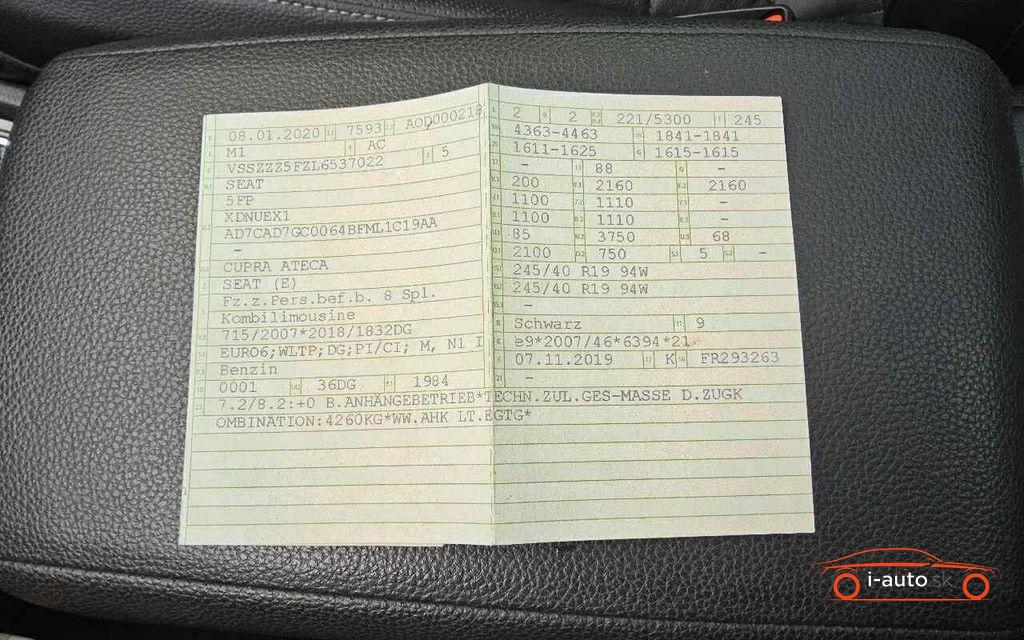 08.01.2020 7593 AOD000218
M1 AC
VSSZZZ5FZL6537022 5
SEAT
5FP
XDNUEX1
AD7CAD7GC0064BFML1C19AA
-
CUPRA ATECA
SEAT (E)
Fz.z.Pers.bef.b. 8 Spl.
Kombilimousine
715/2007*2018/1832DG
EURO6;WLTP;DG;PI/CI; M, N1 I
Benzin
0001 36DG 1984
2 2 221/5300 245
4363-4463 1841-1841
1611-1625 1615-1615
- 88 -
200 2160 2160
1100 1110 -
1100 1110 -
85 3750 68
2100 750 5 -
245/40 R19 94W
245/40 R19 94W
-
Schwarz 9
e9*2007/46*6394*21
07.11.2019 K FR293263
-
7.2/8.2:+0 B.ANHÄNGEBETRIEB*TECHN.ZUL.GES-MASSE D.ZUGK
OMBINATION:4260KG*WW.AHK LT.EGTG*
i-auto.sk